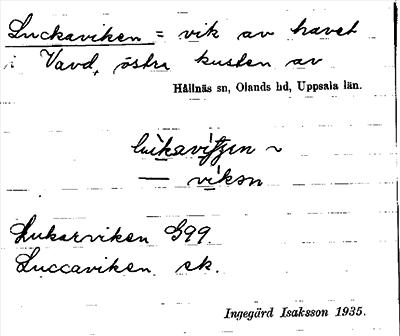 Luckaviken = vik av havet
i Vavd, östra kusten av
Hållnäs sn, Olands hd, Uppsala län.
— vikən
Lukarviken G99
Luccaviken. ek.
Ingegärd Isaksson 1935.